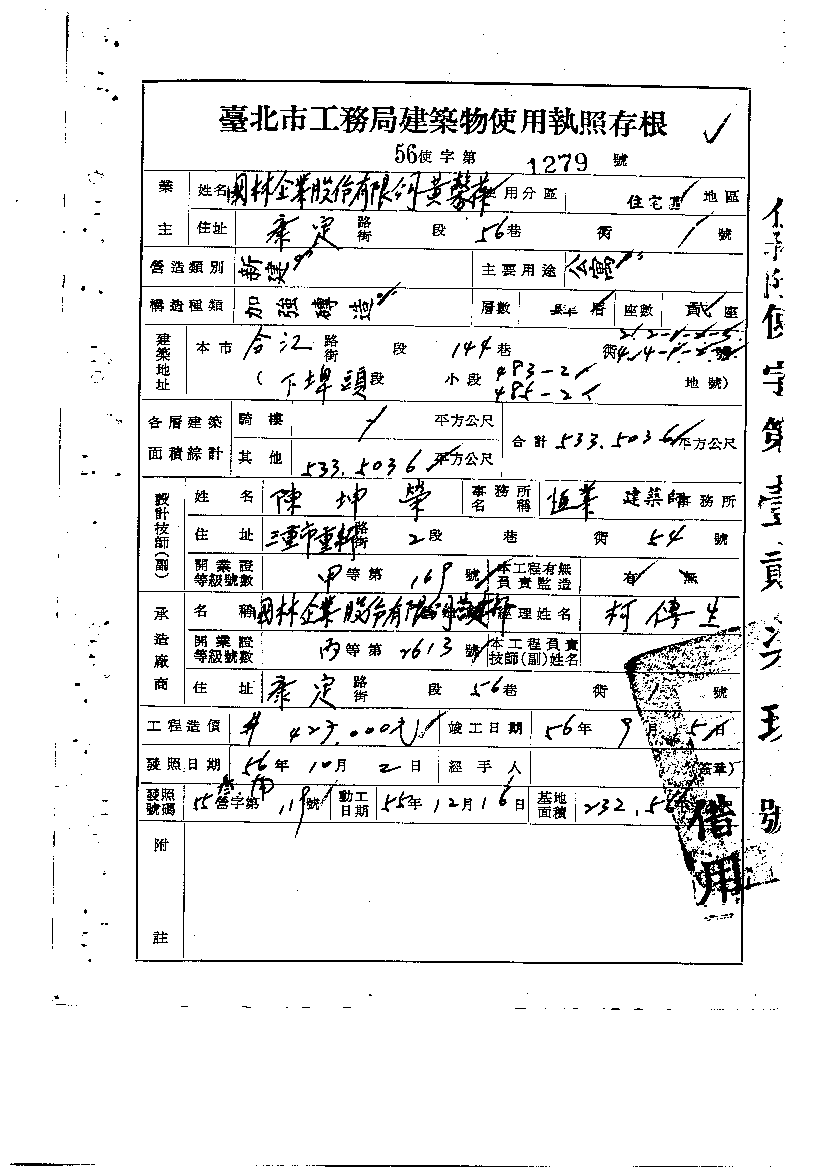 臺北市工務局建築物使用執照存根
56使字第 1279 號
業主 姓名 國林企業股份有限公司 黃 使用分區 住宅 地區
住址 康定 路街 段 56巷 衖 1 號
營造類別 新建 主要用途 公寓
構造種類 加強磚造 層數 層 座數 貳 座
建築地址 本市 合江 路街 段 144巷 衖
(下埤頭段 小段 483-2 485-2 地號)
各層建築面積綜計 騎樓 平方公尺 合計 533.5036 平方公尺
其他 533.5036 平方公尺
設計技師(副) 姓名 陳坤榮 事務所名稱 恆業 建築師事務所
住址 三重市重新路街 2段 巷 衖 54 號
開業證等級號數 甲等第 169 號 本工程有無負責監造 有 無
承造廠商 名稱 國林企業股份有限公司 經理姓名 柯傳生
開業證等級號數 丙等第 2613 號 本工程負責技師(副)姓名
住址 康定 路街 段 56巷 衖 1 號
工程造價 # 423,000元 竣工日期 56年 9月 5日
發照日期 56年 10月 2日 經手人 簽章)
發照號碼 55營字第 119號 動工日期 55年 12月 16日 基地面積 232.56
附註
借用
使字第壹貳柒玖號